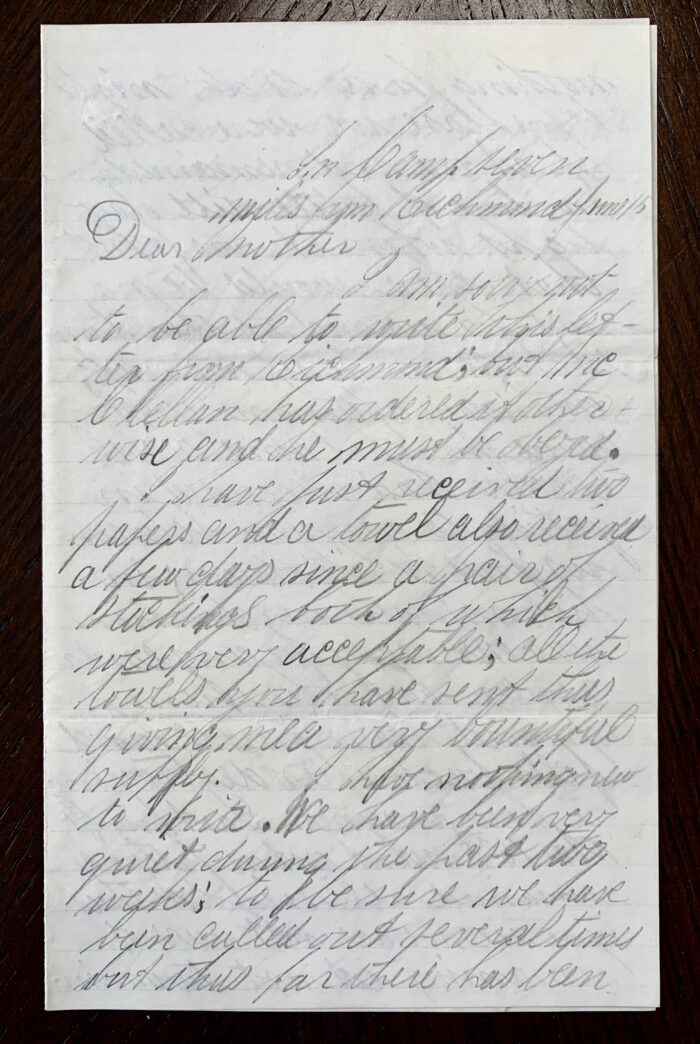 In Camp seven
miles from Richmond June 15
Dear Mother
I am sorry not
to be able to write this let-
ter from Richmond; but Mc
Clellan has ordered it other-
wise and he must be obeyed.
I have just received two
papers and a towel also received
a few days since a pair of
stockings both of which
were very acceptable; all the
towels you have sent thus
giving me a very bountiful
supply. I have nothing new
to write. We have been very
quiet during the past two
weeks; to be sure we have
been called out several times
but thus far there has been